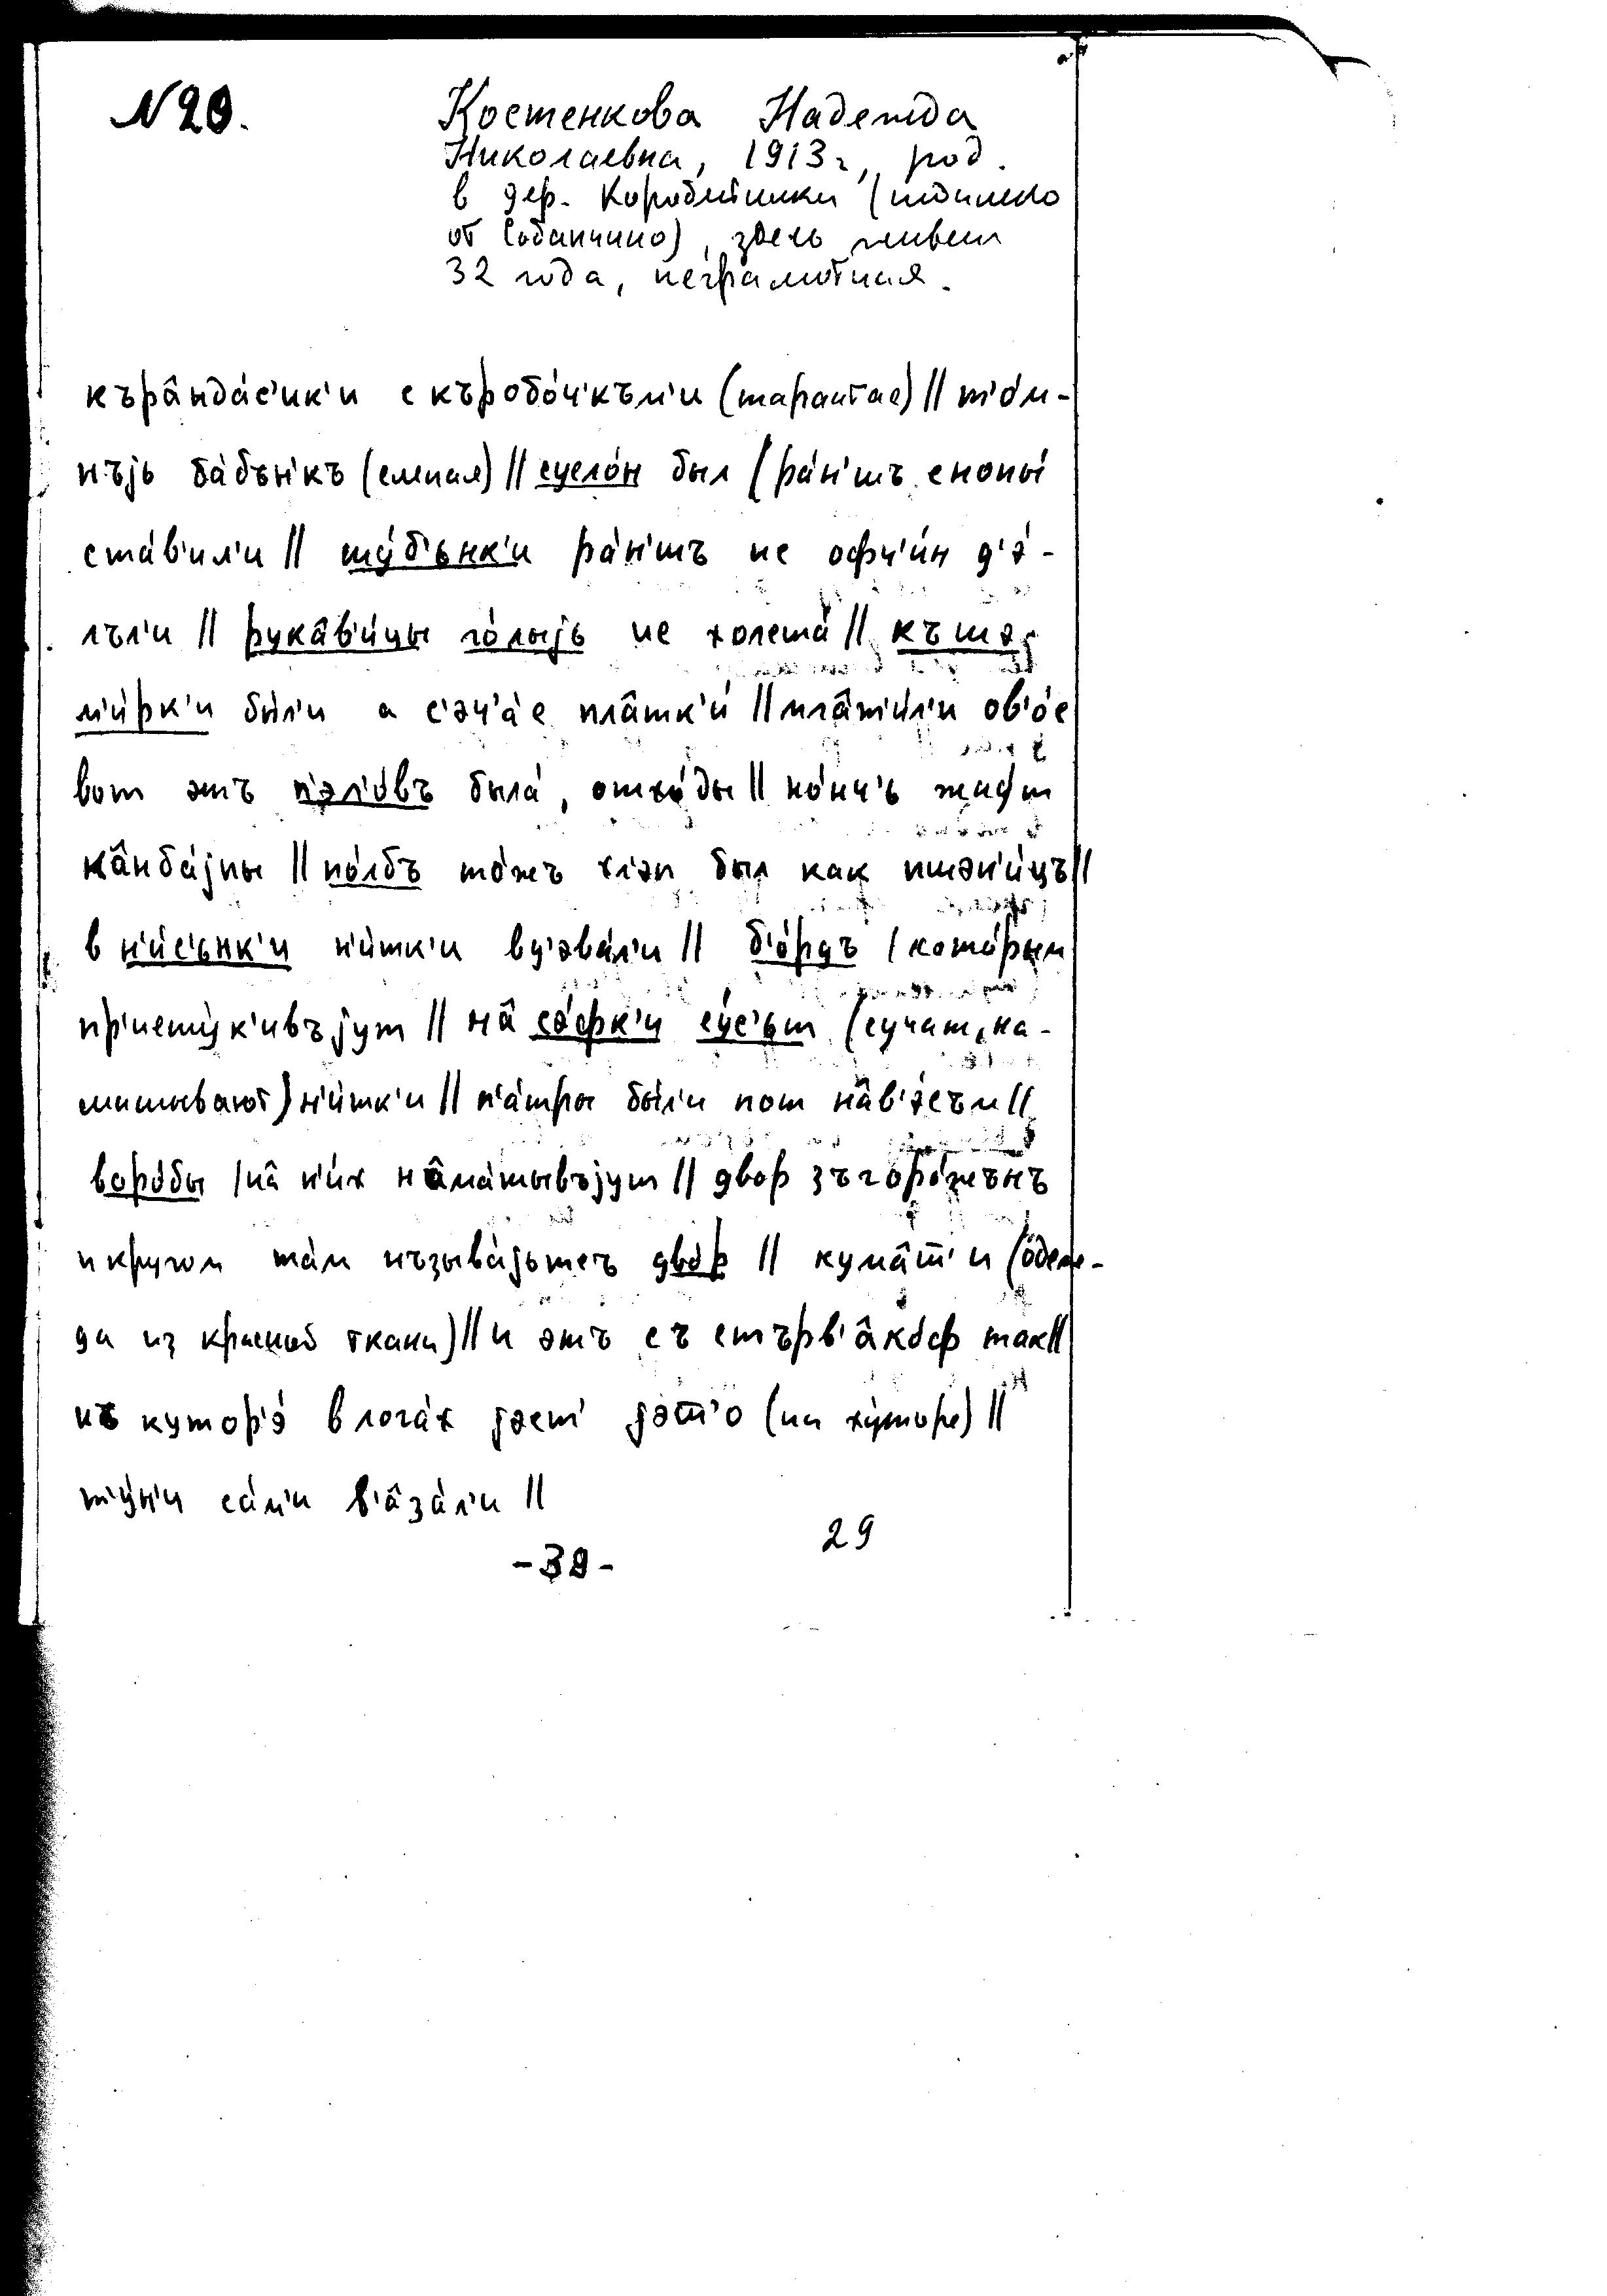 N 20.
Костенкова Надежда
Николаевна, 1913 г, род.
в дер. Коробейники
от Собанчино), здесь живет
32 года, неграмотная.
кърâнда́с'ик'и с къробо́ч'към'и (тарантас) || т'о́м-
нъjь ба́бън'къ (слепая) || сусло́н был (ра́н'шъ снопы́
ста́в'ил'и || шу́б'ънк'и ра́н'шъ не офч'и́н д'э́-
лъл'и || рукâв'и́цы го́лыjь не холста́ || къшэ-
м'и́рк'и бы́л'и а с'эч'а́с плâтк'и́ || плâт'и́л'и ов'о́с
вот этъ п'эло́въ была́, отхо́ды ||
кâнба́jны || по́лбъ то́жъ хл'эп был как пшэн'и́цъ ||
в н'и́с'ънк'и н'и́тк'и вд'эва́л'и || б'о́рдъ (кото́рым
пр'исту́к'ивъjут || нâ сэ́фк'и су́с'ьт (сучат, на-
матывают) н'и́тк'и || п'а́тры бы́л'и пот нâв'э́съм ||
воро́бы (нâ н'их нâма́тывъjут || двор зъгоро́жънъ
и кругом там нъзыва́jьтсъ двор || кумâт'и (одеж-
да из красной ткани) || и этъ съ стърв'âко́ф так ||
нъ кутор'э́ в лога́х jэст' jэт'о (на ху́торе) ||
т'у́н'и са́м'и в'âза́л'и ||
29
-39-